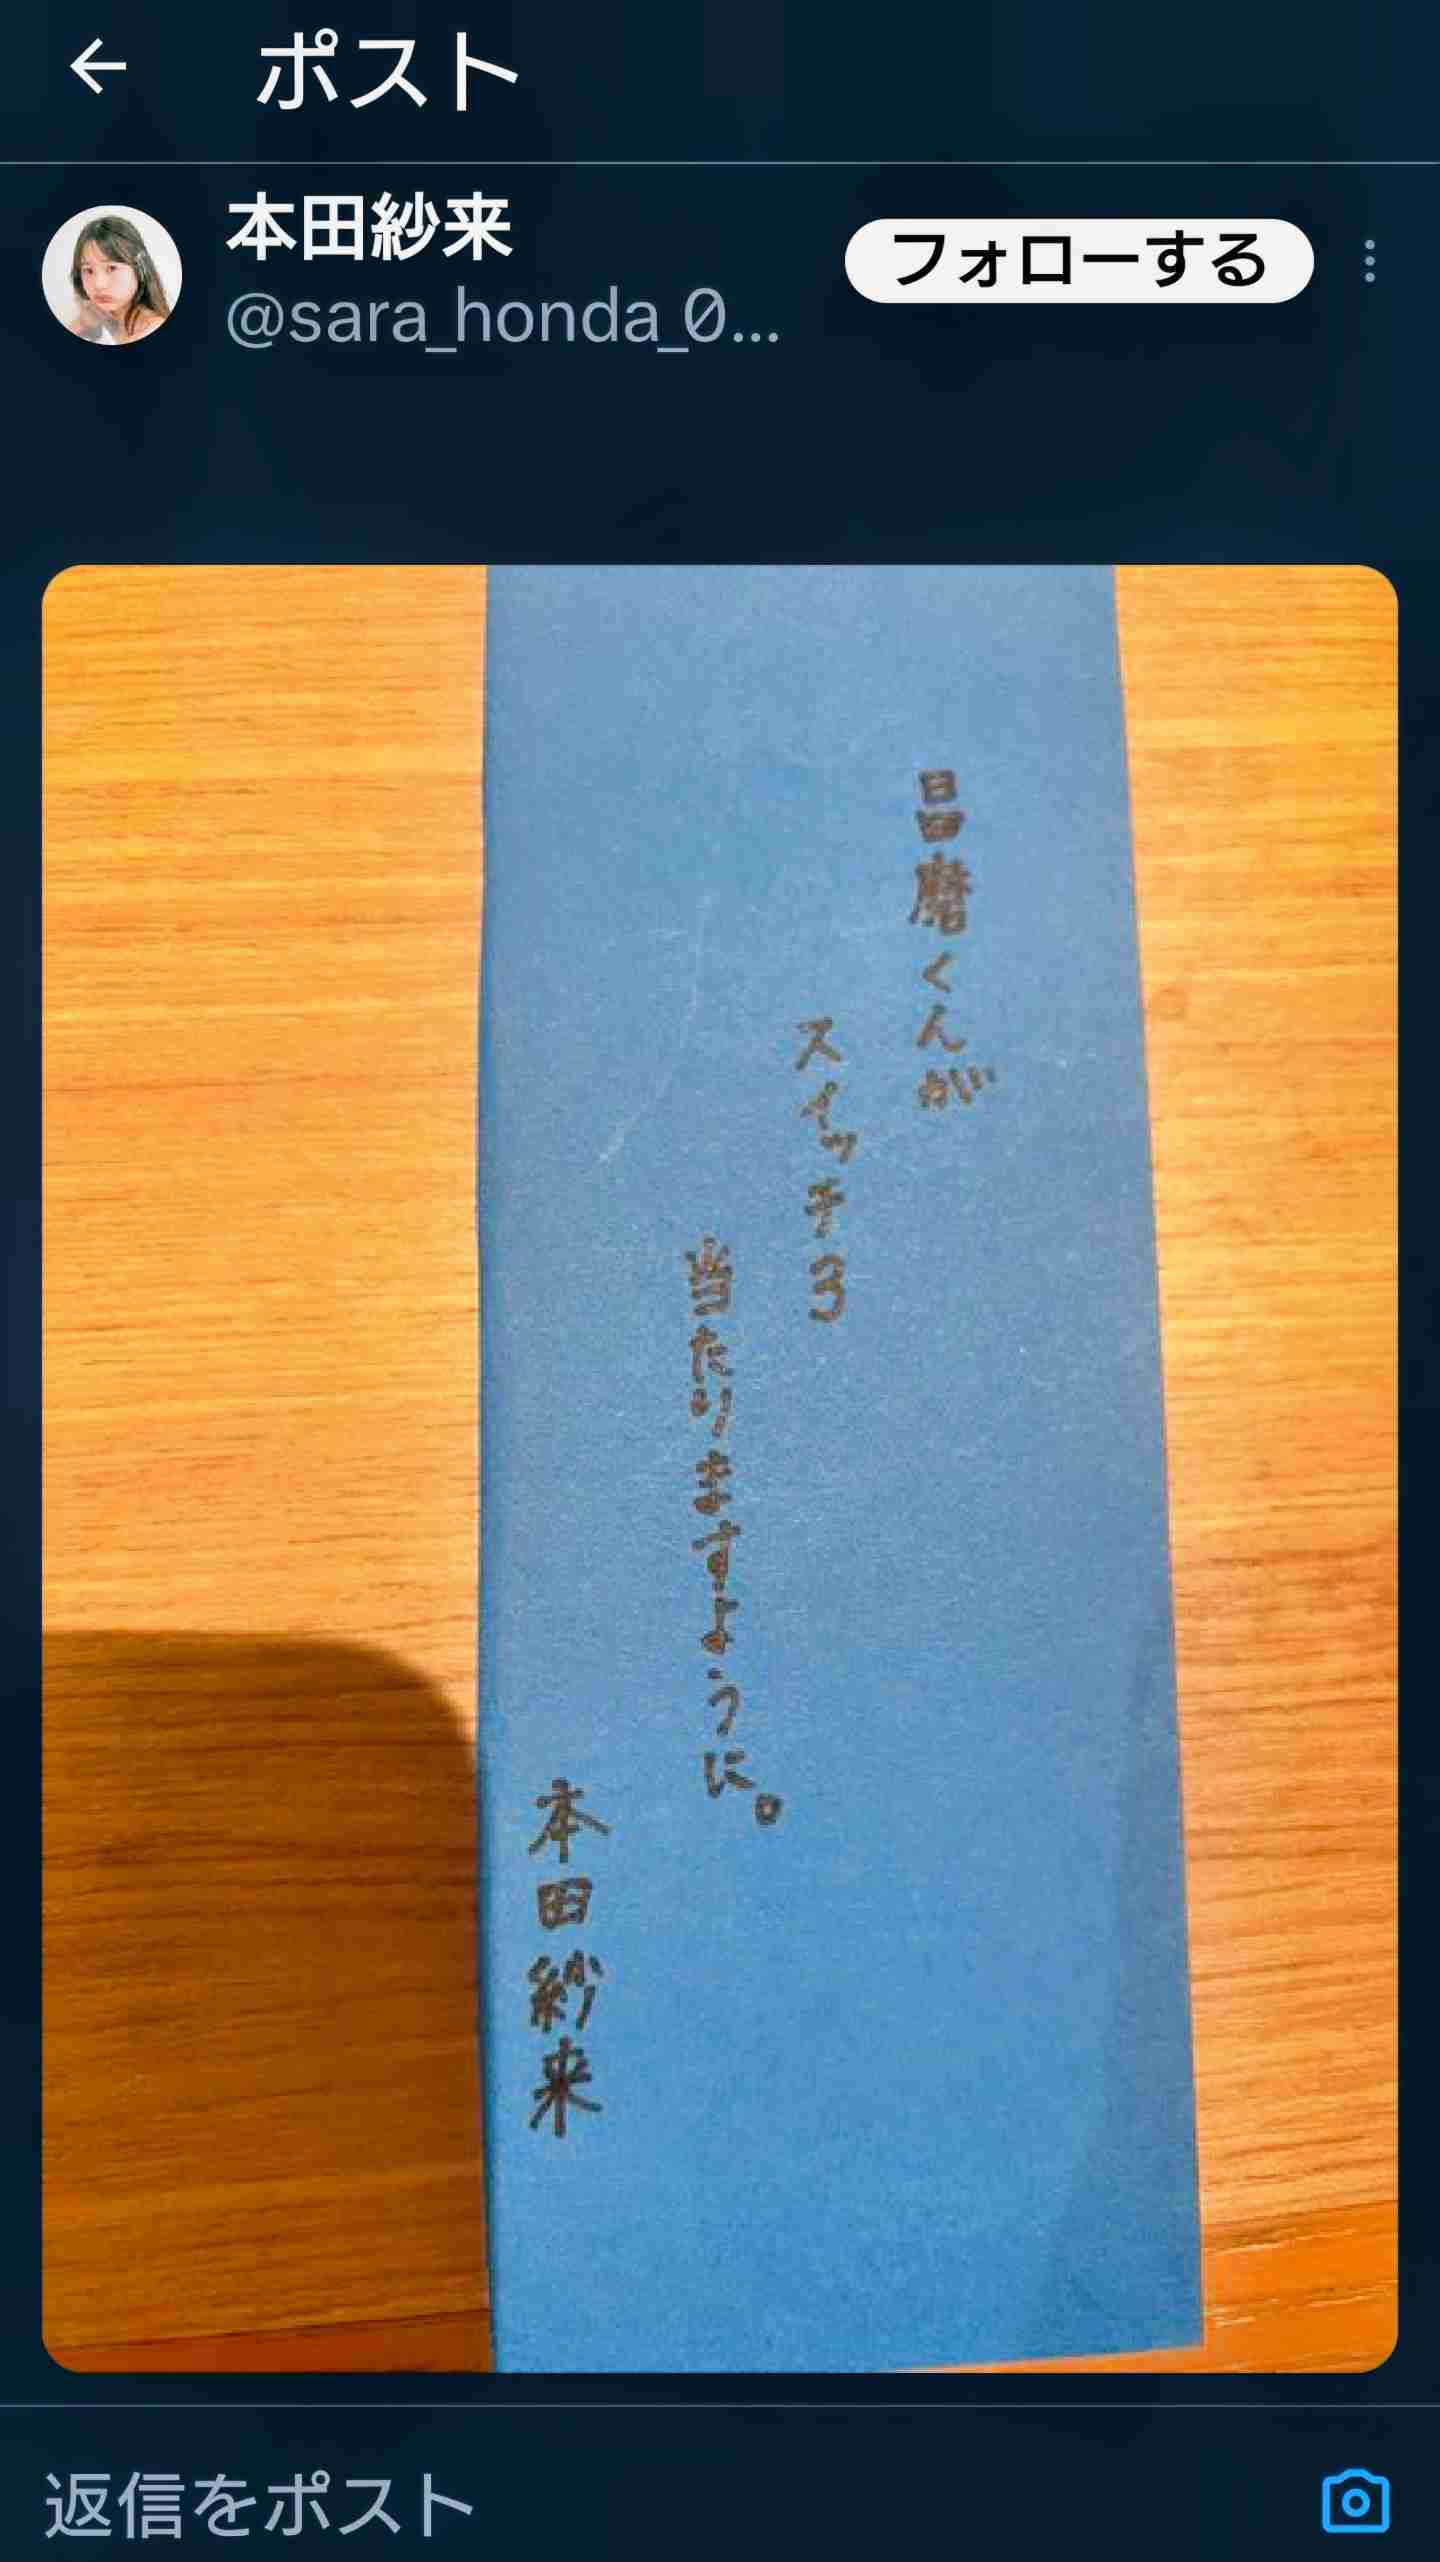 ポスト
本田紗来
フォローする
@sara_honda_0...
昌磨くんが
スイッチ3
当たりますように。
本田紗来
返信をポスト